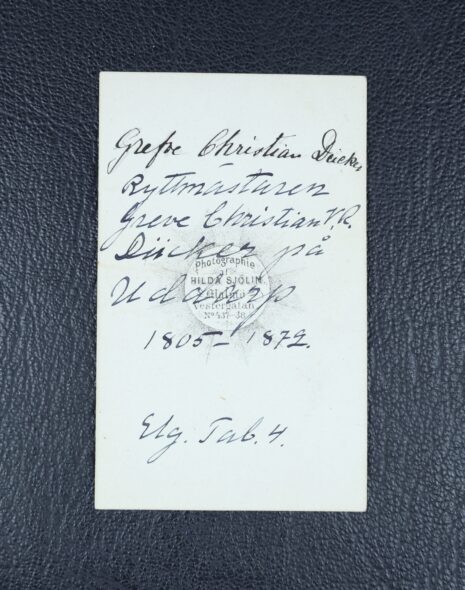 Grefve Christian Dücker
Ryttmästaren
Greve Christian V. R.
Dücker på
Uddarp
Photographie
af
HILDA SJÖLIN
Malmö
Vestergatan
No 437-38
1805 - 1872.
Elg. Tab. 4.